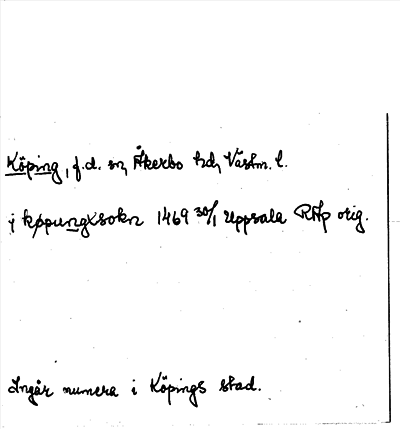 Köping, f.d. sn, Åkerbo hd, Västm. l.
j køpungxsokn 1469 30/1 Uppsala RAp orig.
Ingår numera i Köpings stad.